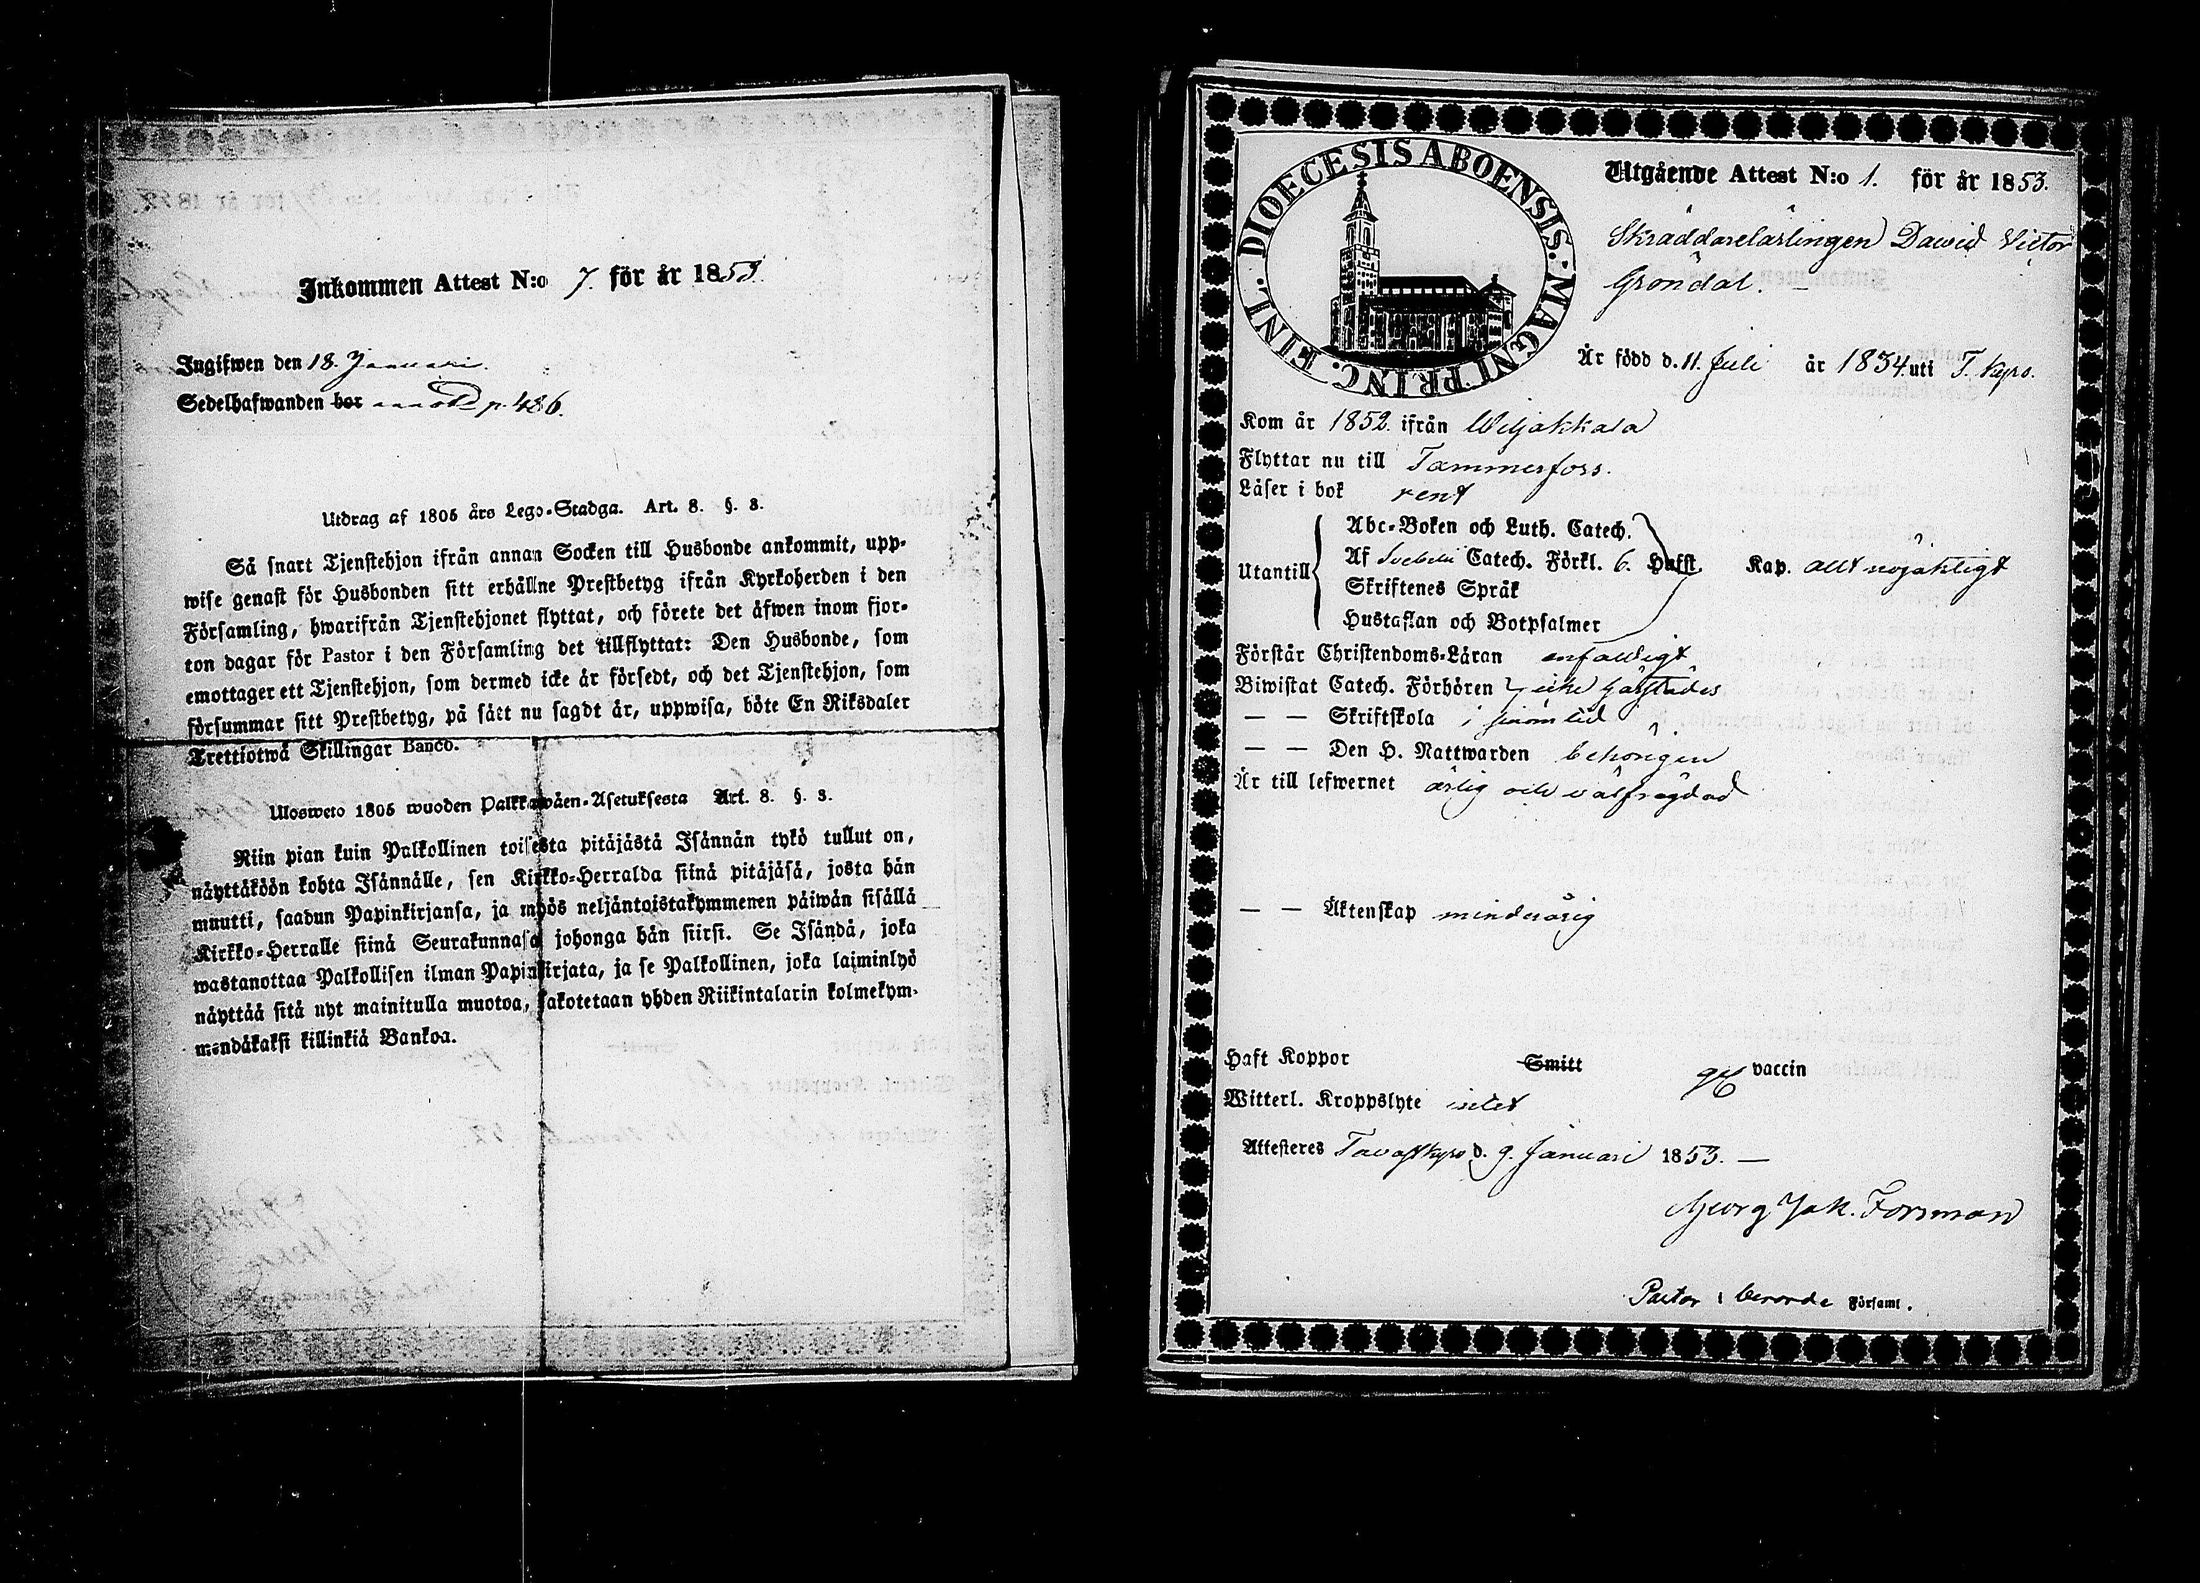 Inkommen Attest N:o 7. för år 1853.
Ingifwen den 18. Januari.
Sedelhafwanden bor p. 486.
Utdrag af 1805 års Lego-Stadga. Art. 8. §. 3.
Så snart Tjenstehjon ifrån annan Socken till Husbonde ankommit, upp-
wise genast för Husbonden sitt erhållne Prestbetyg ifrån Kyrkoherden i den
Församling, hwarifrån Tjenstehjonet flyttat, och förete det äfwen inom fjor-
ton dagar för Pastor i den Församling det tillflyttat: Den Husbonde, som
emottager ett Tjenstehjon, som dermed icke är försedt, och det Tjenstehjon, som
försummar sitt Prestbetyg, på sätt nu sagdt är, uppwisa, böte En Riksdaler
Trettiotwå Skillingar Banco.
Ulosweto 1805 wuoden Palkkawäen-Asetuksesta Art. 8. §. 3.
Niin pian kuin Palkollinen toisesta pitäjästä Isännän tykö tullut on,
näyttäköön kohta Isännälle, sen Kirkko-Herralda siinä pitäjäsä, josta hän
muutti, saadun Papinkirjansa, ja myös neljäntoistakymmenen päiwän sisällä
Kirkko-Herralle siinä Seurakunnasa johonga hän siirsi. Se Isändä, joka
wastanottaa Palkollisen ilman Papinkirjata, ja se Palkollinen, joka laiminlyö
näyttää sitä nyt mainitulla muotoa, sakotetaan yhden Riikintalarin kolmekym-
mendäkaksi killinkiä Bankoa.
DIOECESIS ABOENSIS. MAGNI PRINC. FINL.
Utgående Attest N:o 1. för år 1853.
Skräddarelärlingen Dawid Victor
Gröndal. –
Är född d. 11. Juli år 1834 uti T. Kyro.
Kom år 1852. ifrån Wiljakkala
Flyttar nu till Tammerfors.
Läser i bok rent
Abc-Boken och Luth. Catech.
Utantill Af Svebelii Catech. Förkl. 6. Hufst. Kap. allt nöjaktigt
Skriftenes Språk
Hustaflan och Botpsalmer
Förstår Christendoms-Läran enfaldigt
Biwistat Catech. Förhören icke härstädes
— — Skriftskola i sinom tid
— — Den H. Nattwarden behörigen
Är till lefwernet ärlig och välfrägdad
— — Äktenskap minderårig
Haft Koppor Smitt vaccin
Witterl. Kroppslyte intet
Attesteres Tavastkyro d. 9. Januari 1853. —
Georg Jak. Forsman
Pastor i berörde Församl.